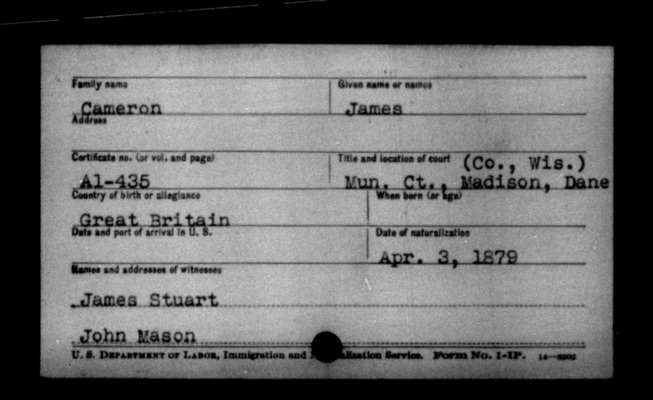 Family name Given name or names
Cameron James
Address
Certificate no. (or vol. and page) Title and location of court (Co., Wis.)
A1-435 Mun. Ct., Madison, Dane
Country of birth or allegiance When born (or age)
Great Britain
Date and port of arrival in U. S. Date of naturalization
Apr. 3, 1879
Names and addresses of witnesses
James Stuart
John Mason
U. S. DEPARTMENT OF LABOR, Immigration and alization Service. Form No. 1-IP.